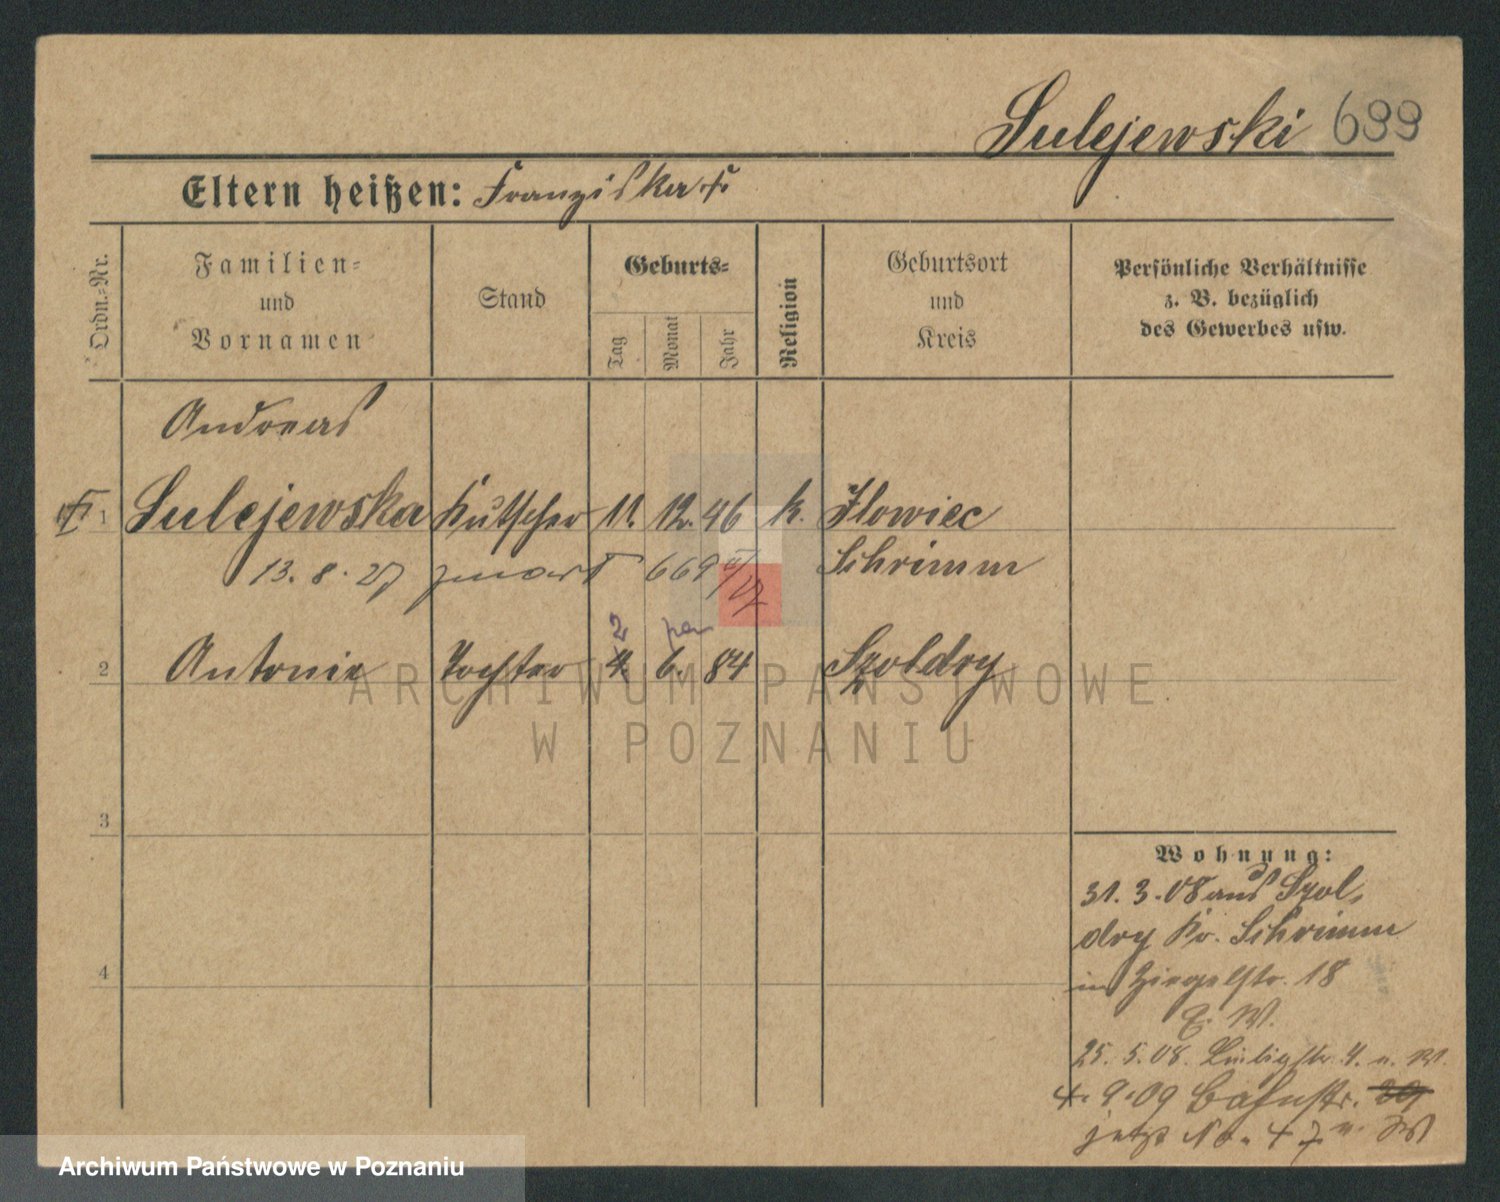 Sulejewski 699
Eltern heißen: Franziska F.
Ordn.=Nr.
Familien=
und
Vornamen
Stand
Geburts=
Tag
Monat
Jahr
Religion
Geburtsort
und
Kreis
Persönliche Verhältnisse
z. B. bezüglich
des Gewerbes usw.
Andreas
1 Sulejewska Kutscher 11. 12. 46 k. Ilowiec
13. 8. 27 669 Schrimm
2
2 Antonie Tochter 4. 6. 84 Szoldry
ARCHIWUM PAŃSTWOWE
W POZNANIU
3
4
Wohnung:
31. 3. 08 aus Szol=
dry Kr. Schrimm
in Ziegelstr. 18
E. W.
25. 5. 08. Liebigstr. 4. n. W.
4. 9. 09 Bahnstr. 29
jetzt No. 47
Archiwum Państwowe w Poznaniu